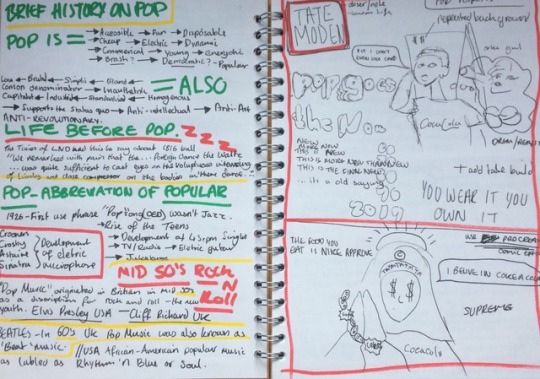 BRIEF HISTORY ON POP
POP IS = → Accessible → Fun → Disposable
→ Cheap → Electric → Dynamic
→ Commercial → Young → Energetic
→ Brash? → Democratic? → Popular
Low ← Brutal ← Simple ← Bland ← = ALSO
Common denominator → Inauthentic
Capitalist ← Industrial ← Standardised ← Homogenous
→ Supports the Status quo → Anti-intellectual → Anti-Art
ANTI-REVOLUTIONARY.
LIFE BEFORE POP. ZZZZ
The Times of LND had this to say about 1816 ball
"We remarked with pain that the... foreign dance the Waltz
... was quite sufficient to cast eyes on the Voluptuous intertwining
of limbs and close compressor on the bodies in these dance..."
POP - ABBREVATION OF POPULAR
1926 - First use phrase "Pop" song (OED) wasn't Jazz.
→ Rise of the Teens
Crooners
Crosby
Astaire
Sinatra
Development
of eletric
microphone
→ Development of 45rpm singles
→ TV/Radio → Electric guitar
→ Jukeboxes
MID 50's ROCK
N
Roll
"Pop Music" originated in Britain in mid 50's
as a description for rock and roll - the new
youth. Elvis Presley USA — Cliff Richard UK
BEATLES - In 60's UK Pop Music was also known as
'Beat' music. // USA African-American popular music
as labled as Rhythm 'n Blue or Soul.
TATE
MODEN
repeated background
BUT I DON'T
EVEN LIKE COKE
CocaCola
pop goes
the
NEW
THIS IS MORE NEW THAN NEW
THIS IS THE FINAL NEW
... its a old saying
+ add take build
YOU WEAR IT YOU
OWN IT
THE FOOD YOU
EAT IS NIKE APPROVE
I BELIVE IN COKEACOLA
SUPREME
CocaCola